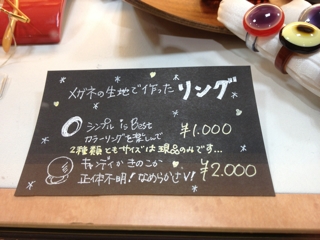 メガネの生地で作ったリング
シンプル is Best
カラーリングを楽しんで
¥1.000
2種類ともサイズは現品のみです…
キャンディか きのこか
正体不明! なめらかさV!
¥2.000